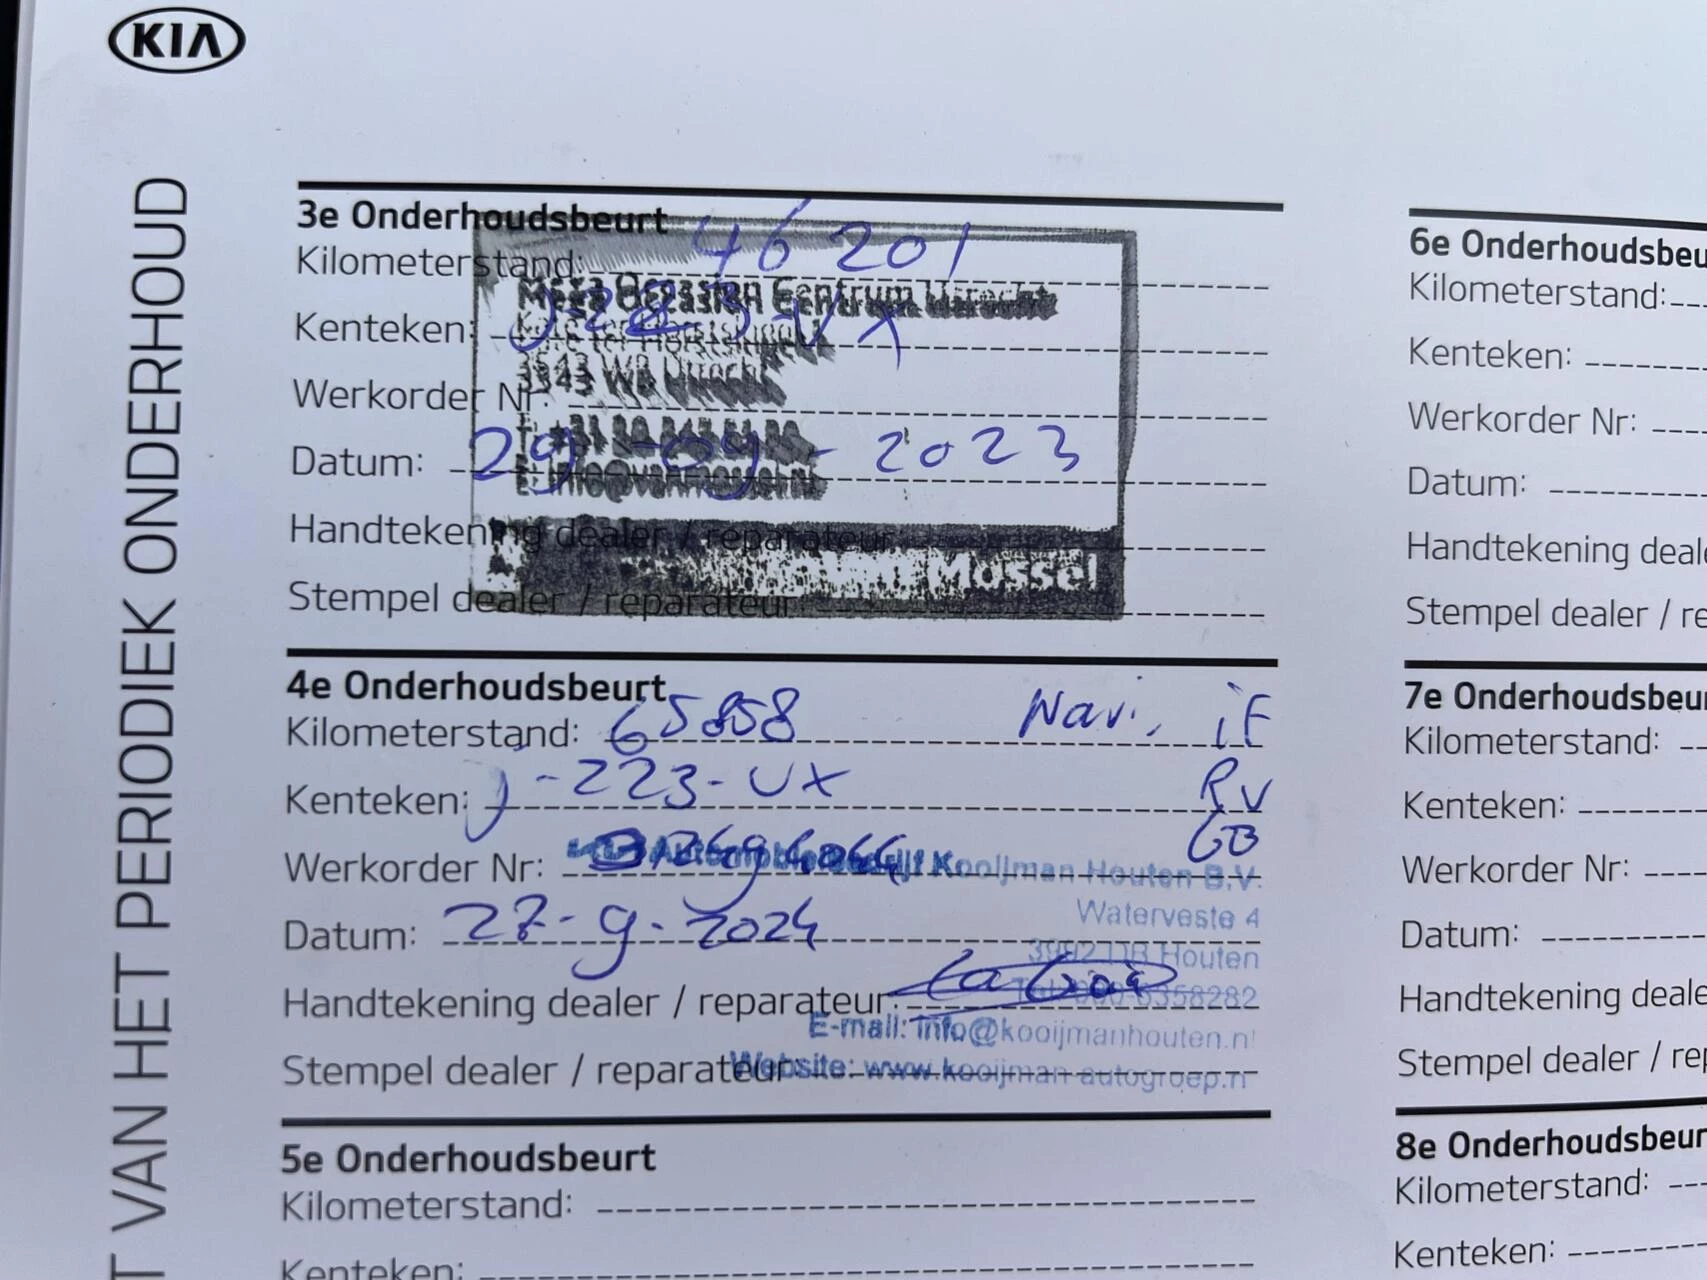 KIA
T VAN HET PERIODIEK ONDERHOUD
3e Onderhoudsbeurt
Kilometerstand: 46201
Mega Occasion Centrum Utrecht
Kenteken: J-223-VX
3543 WB Utrecht
Werkorder Nr:
Datum: 29-09-2023
E: info@vanmossel.nl
Handtekening dealer / reparateur
Mossel
Stempel dealer / reparateur:
4e Onderhoudsbeurt
Kilometerstand: 65858 Navi, iF
Kenteken: J-223-VX RV
GB
Werkorder Nr:
Automobielbedrijf Kooijman Houten B.V.
Waterveste 4
Datum: 27-9-2024
3992 DB Houten
Handtekening dealer / reparateur:
6358282
E-mail: info@kooijmanhouten.nl
Stempel dealer / reparateur:
Website: www.kooijman-autogroep.nl
5e Onderhoudsbeurt
Kilometerstand:
Kenteken:
6e Onderhoudsbeu
Kilometerstand:
Kenteken:
Werkorder Nr:
Datum:
Handtekening deale
Stempel dealer / re
7e Onderhoudsbeur
Kilometerstand:
Kenteken:
Werkorder Nr:
Datum:
Handtekening deale
Stempel dealer / rep
8e Onderhoudsbeur
Kilometerstand:
Kenteken: